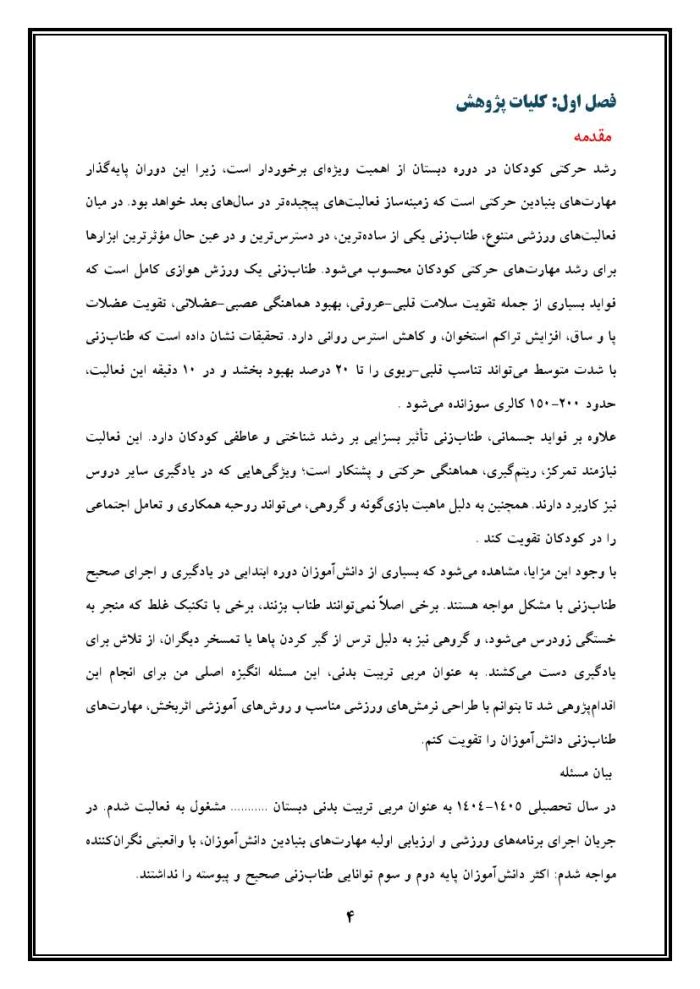 فصل اول: کلیات پژوهش
مقدمه
رشد حرکتی کودکان در دوره دبستان از اهمیت ویژه‌ای برخوردار است، زیرا این دوران پایه‌گذار
مهارت‌های بنیادین حرکتی است که زمینه‌ساز فعالیت‌های پیچیده‌تر در سال‌های بعد خواهد بود. در میان
فعالیت‌های ورزشی متنوع، طناب‌زنی یکی از ساده‌ترین، در دسترس‌ترین و در عین حال مؤثرترین ابزارها
برای رشد مهارت‌های حرکتی کودکان محسوب می‌شود. طناب‌زنی یک ورزش هوازی کامل است که
فواید بسیاری از جمله تقویت سلامت قلبی-عروقی، بهبود هماهنگی عصبی-عضلانی، تقویت عضلات
پا و ساق، افزایش تراکم استخوان، و کاهش استرس روانی دارد. تحقیقات نشان داده است که طناب‌زنی
با شدت متوسط می‌تواند تناسب قلبی-ریوی را تا ۲۰ درصد بهبود بخشد و در ۱۰ دقیقه این فعالیت،
حدود ۲۰۰-۱۵۰ کالری سوزانده می‌شود .
علاوه بر فواید جسمانی، طناب‌زنی تأثیر بسزایی بر رشد شناختی و عاطفی کودکان دارد. این فعالیت
نیازمند تمرکز، ریتم‌گیری، هماهنگی حرکتی و پشتکار است؛ ویژگی‌هایی که در یادگیری سایر دروس
نیز کاربرد دارند. همچنین به دلیل ماهیت بازی‌گونه و گروهی، می‌تواند روحیه همکاری و تعامل اجتماعی
را در کودکان تقویت کند .
با وجود این مزایا، مشاهده می‌شود که بسیاری از دانش‌آموزان دوره ابتدایی در یادگیری و اجرای صحیح
طناب‌زنی با مشکل مواجه هستند. برخی اصلاً نمی‌توانند طناب بزنند، برخی با تکنیک غلط که منجر به
خستگی زودرس می‌شود، و گروهی نیز به دلیل ترس از گیر کردن پاها یا تمسخر دیگران، از تلاش برای
یادگیری دست می‌کشند. به عنوان مربی تربیت بدنی، این مسئله انگیزه اصلی من برای انجام این
اقدام‌پژوهی شد تا بتوانم با طراحی نرمش‌های ورزشی مناسب و روش‌های آموزشی اثربخش، مهارت‌های
طناب‌زنی دانش‌آموزان را تقویت کنم.
بیان مسئله
در سال تحصیلی ۱۴۰۵-۱۴۰۴ به عنوان مربی تربیت بدنی دبستان ........... مشغول به فعالیت شدم. در
جریان اجرای برنامه‌های ورزشی و ارزیابی اولیه مهارت‌های بنیادین دانش‌آموزان، با واقعیتی نگران‌کننده
مواجه شدم: اکثر دانش‌آموزان پایه دوم و سوم توانایی طناب‌زنی صحیح و پیوسته را نداشتند.
۴